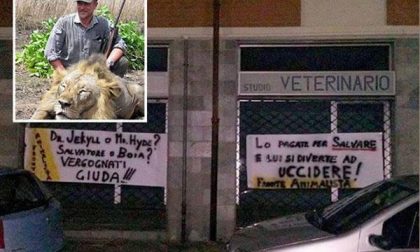 STUDIO VETERINARIO
DR. JEKYLL O MR. HYDE?
SALVATORE O BOIA?
VERGOGNATI
GIUDA!!!
LO PAGATE PER SALVARE
E LUI SI DIVERTE AD
UCCIDERE!
FRONTE ANIMALISTA